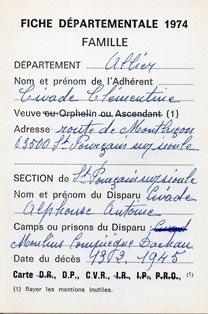 FICHE DÉPARTEMENTALE 1974
FAMILLE
DÉPARTEMENT Allier
Nom et prénom de l'Adhérent
Civade Clémentine
Veuve ou Orphelin ou Ascendant (1)
Adresse route de Montluçon
03500 St Pourçain sur sioule
SECTION de St Pourçain sur sioule
Nom et prénom du Disparu Civade
Alphonse Antoine
Camps ou prisons du Disparu :
Moulins Compiègne Dachau
Date du décès 1945
Carte D.R., D.P., C.V.R., I.R., I.P., P.R.O., (1)
(1) Rayer les mentions inutiles.